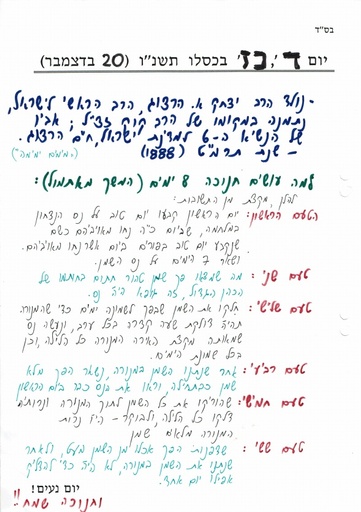 בס"ד
יום ד', כז' בכסלו תשנ"ו (20 בדצמבר)
-נולד הרב יצחק א. הרצוג, הרב הראשי לישראל,
נתמנה במקומו של הרב קוק זצ"ל; אביו
של הנשיא ה-6 למדינת ישראל, חיים הרצוג.
- שנת תרמ"ט (1888) ("מימים ימימה")
למה עושים חנוכה 8 ימים (המשך מאתמול):
להלן, מקצת מן התשובות:
הטעם הראשון: יום הראשון קבעו יום טוב על נס הנצחון
במלחמה, שביום כ"ה נחו מאויביהם כשם
שנקבע יום טוב בפורים ביום אשר נחו מאויביהם.
ושאר 7 הימים על נס השמן.
טעם שני: מה שמצאו פך שמן טהור חתום בחותמו של
הכהן הגדול, זה גופא היה נס.
טעם שלישי: חלקו את השמן שבפך לשמונה ימים כדי שהמנורה
תהיה דולקת שעה קצרה בכל ערב, ונעשה נס
שמאותה מקצת האירה המנורה כל הלילה, וכן
בכל שמונת הימים.
טעם רביעי: אחר שנתנו השמן במנורה, נשאר הפך מלא
שמן כבתחילה, וראו את הנס כבר ביום הראשון
טעם חמישי: שהורקו את כל השמן לתוך המנורה ונרותיה
דלקו כל הלילה, ולבוקר - היו נרות
המנורה מלאים שמן
טעם ששי: שדפנות הפך אכלו מן השמן מעט, ולאחר
שנתנו את השמן במנורה, לא היה כדי להדליק
אפילו יום אחד.
יום נעים!
וחנוכה שמח!!